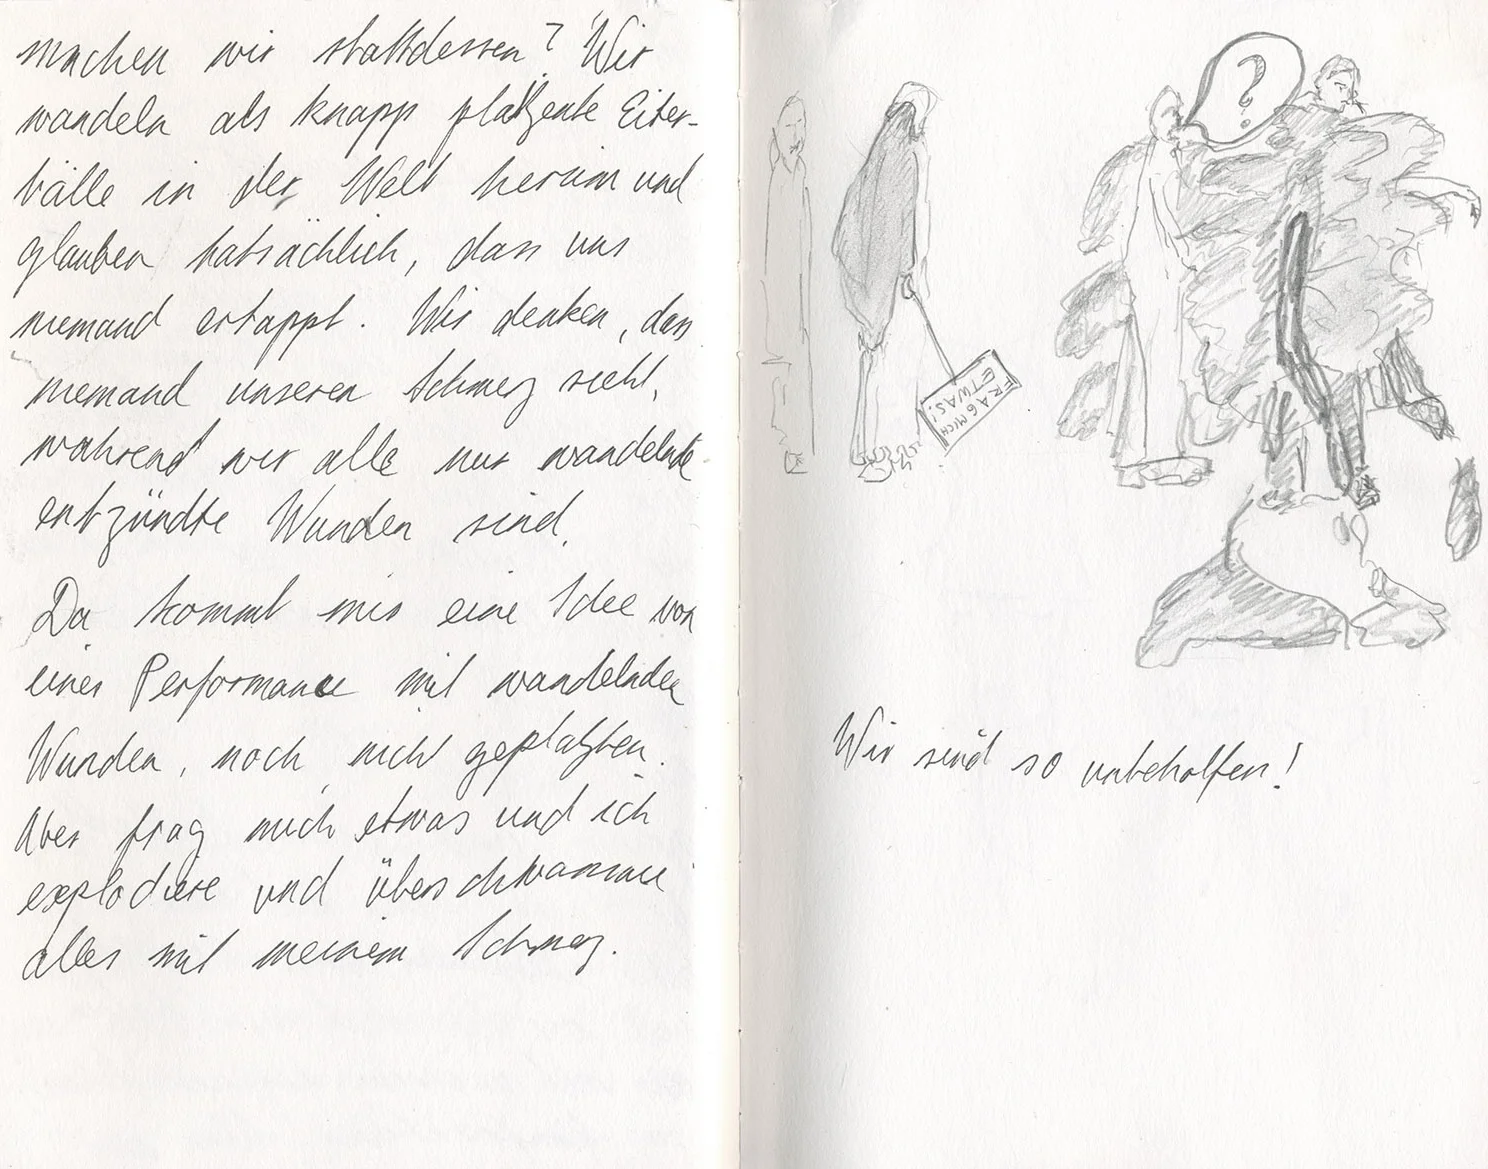 machen wir stattdessen? Wir
wandeln als knapp platzente Eiter-
bälle in der Welt herum und
glauben tatsächlich, dass uns
niemand ertappt. Wir denken, dass
niemand unseren Schmerz sieht,
während wir alle nur wandelnde
entzündte Wunden sind.
Da kommt mir eine Idee von
einer Performance mit wandelnden
Wunden, noch nicht geplatzten.
Aber frag mich etwas und ich
explodiere und überschwamme
alles mit meinem Schmerz.
?
FRAG MICH
ETWAS!
Wir sind so unbeholfen!